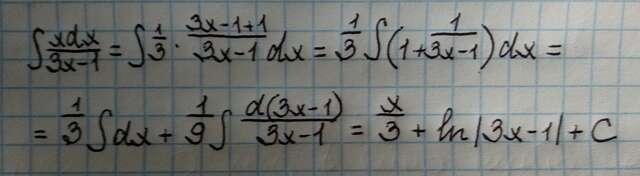 ∫ xdx/(3x-1) = ∫ 1/3 · (3x-1+1)/(3x-1) dx = 1/3 ∫(1 + 1/(3x-1)) dx =
= 1/3 ∫dx + 1/9 ∫ d(3x-1)/(3x-1) = x/3 + ln|3x-1| + C